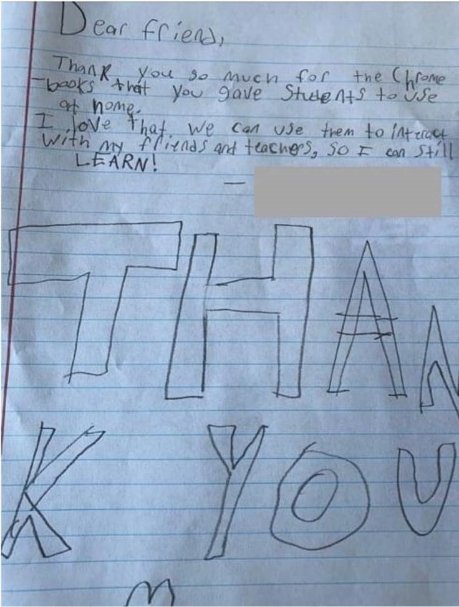 Dear friend,
Thank you so much for the Chrome
-books that you gave Students to use
at home.
I love that we can use them to interact
with my friends and teachers, so I can still
LEARN!
—
THAN
K YOU